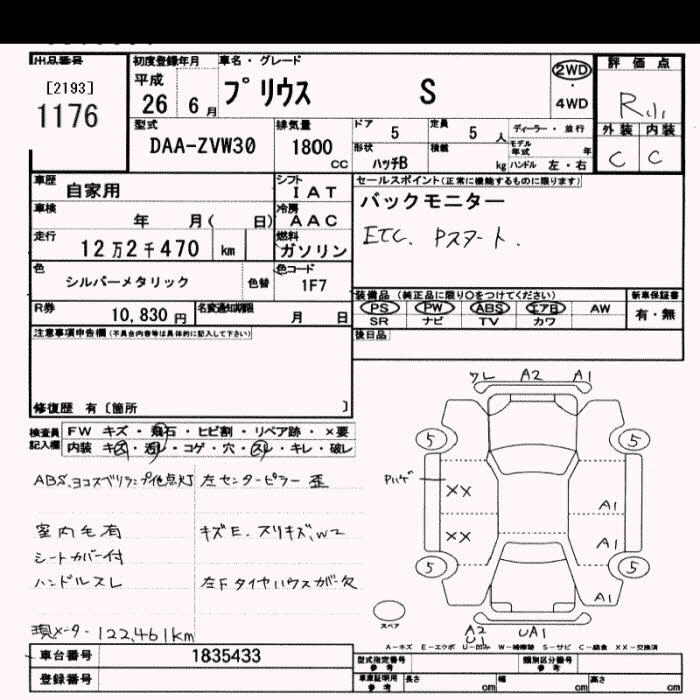 出品番号
[2193]
1176
初度登録年月 車名・グレード
平成
26 6月 プリウス S
2WD
4WD
評価点
R小
外装 内装
C C
型式 排気量 ドア 定員 ディーラー・並行
DAA-ZVW30 1800 cc 5 5人 モデル年式 年
形状 積載 kg ハンドル 左・右
ハッチB
車歴 自家用 シフト IAT
車検 年 月( 日) 冷房 AAC
走行 12万2千470 km 燃料 ガソリン
色 シルバーメタリック 色替 色コード 1F7
R券 10,830円 名変通知期限 月 日
セールスポイント(正常に機能するものに限ります)
バックモニター
ETC. Pスタート.
装備品 (純正品に限り○をつけてください) 新車保証書
PS PW ABS エアB AW 有・無
SR ナビ TV カワ
後日品
注意事項申告欄(不具合内容等は具体的に記入して下さい)
修復歴 有〔箇所 〕
検査員記入欄
FW キズ・飛石・ヒビ割・リペア跡・×要
内装 キズ・汚レ・コゲ・穴・スレ・キレ・破レ
ABS.ヨコスベリランプ他点灯 左センターピラー 歪
室内毛有 キズE.スリキズ,W2
シートカバー付
ハンドルスレ 左Fタイヤハウスカバー欠
現メーター 122,461km
ワレ A2 A1
5 5
Pハゲ
XX A1
XX A1
5 5
A1
スペア
A2 UA1
U1
A-キズ E-エクボ U-凹み W-補修跡 S-サビ C-腐食 XX-交換済
車台番号 1835433
登録番号
型式指定番号 参考 類別区分番号 参考
車庫証明用 参考 長さ cm 幅 cm 高さ cm